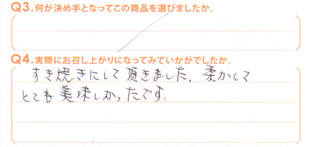 Q3.何が決め手となってこの商品を選びましたか。
Q4.実際にお召し上がりになってみていかがでしたか。
すき焼きにして頂きました。柔かくて
とても美味しかったです。